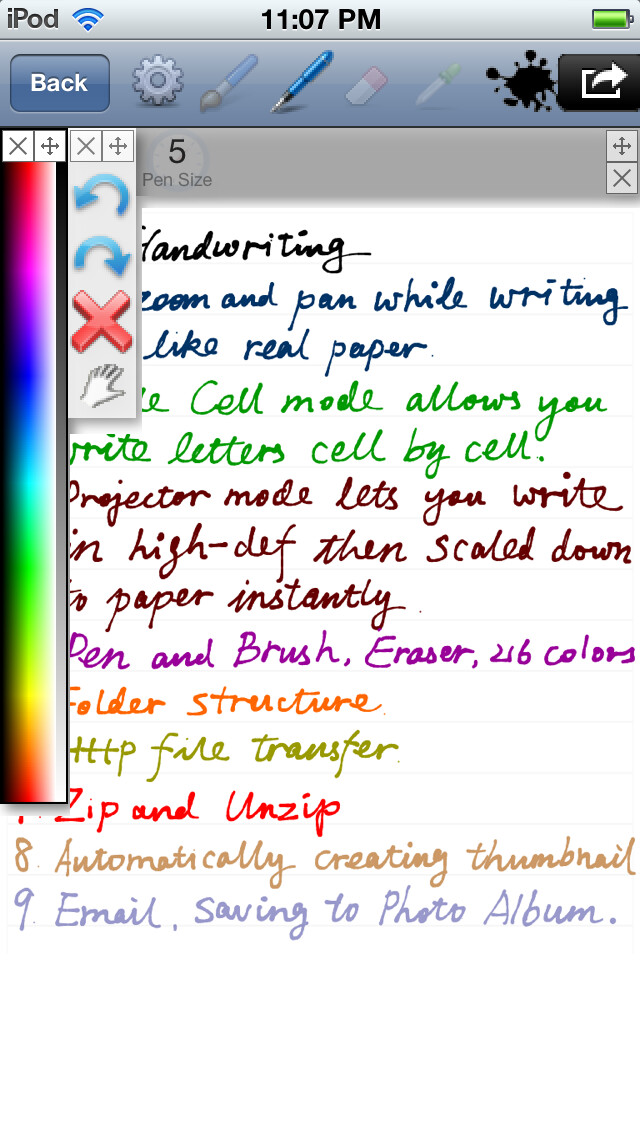 iPod 11:07 PM
Back
5
Pen Size
Handwriting
zoom and pan while writing
like real paper.
Cell mode allows you
write letters cell by cell.
Projector mode lets you write
in high-def then scaled down
to paper instantly.
Pen and Brush, Eraser, 216 colors
Folder structure.
Http file transfer.
Zip and Unzip
8. Automatically creating thumbnail
9. Email, Saving to Photo Album.